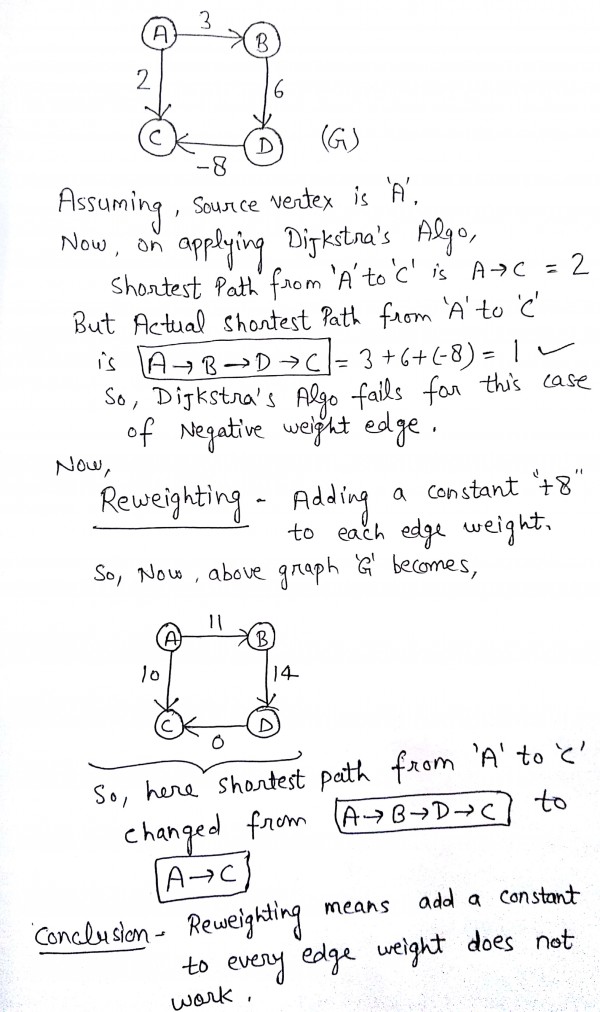 A 3 B
2 6
C D (G)
-8
Assuming, Source vertex is 'A'.
Now, on applying Dijkstra's Algo,
Shortest Path from 'A' to 'C' is A→C = 2
But Actual Shortest Path from 'A' to 'C'
is A→B→D→C = 3+6+(-8) = 1 ✓
So, Dijkstra's Algo fails for this case
of Negative weight edge.
Now,
Reweighting - Adding a constant "+8"
to each edge weight.
So, Now, above graph 'G' becomes,
A 11 B
10 14
C D
0
So, here shortest path from 'A' to 'C'
changed from A→B→D→C to
A→C
Conclusion - Reweighting means add a constant
to every edge weight does not
work.